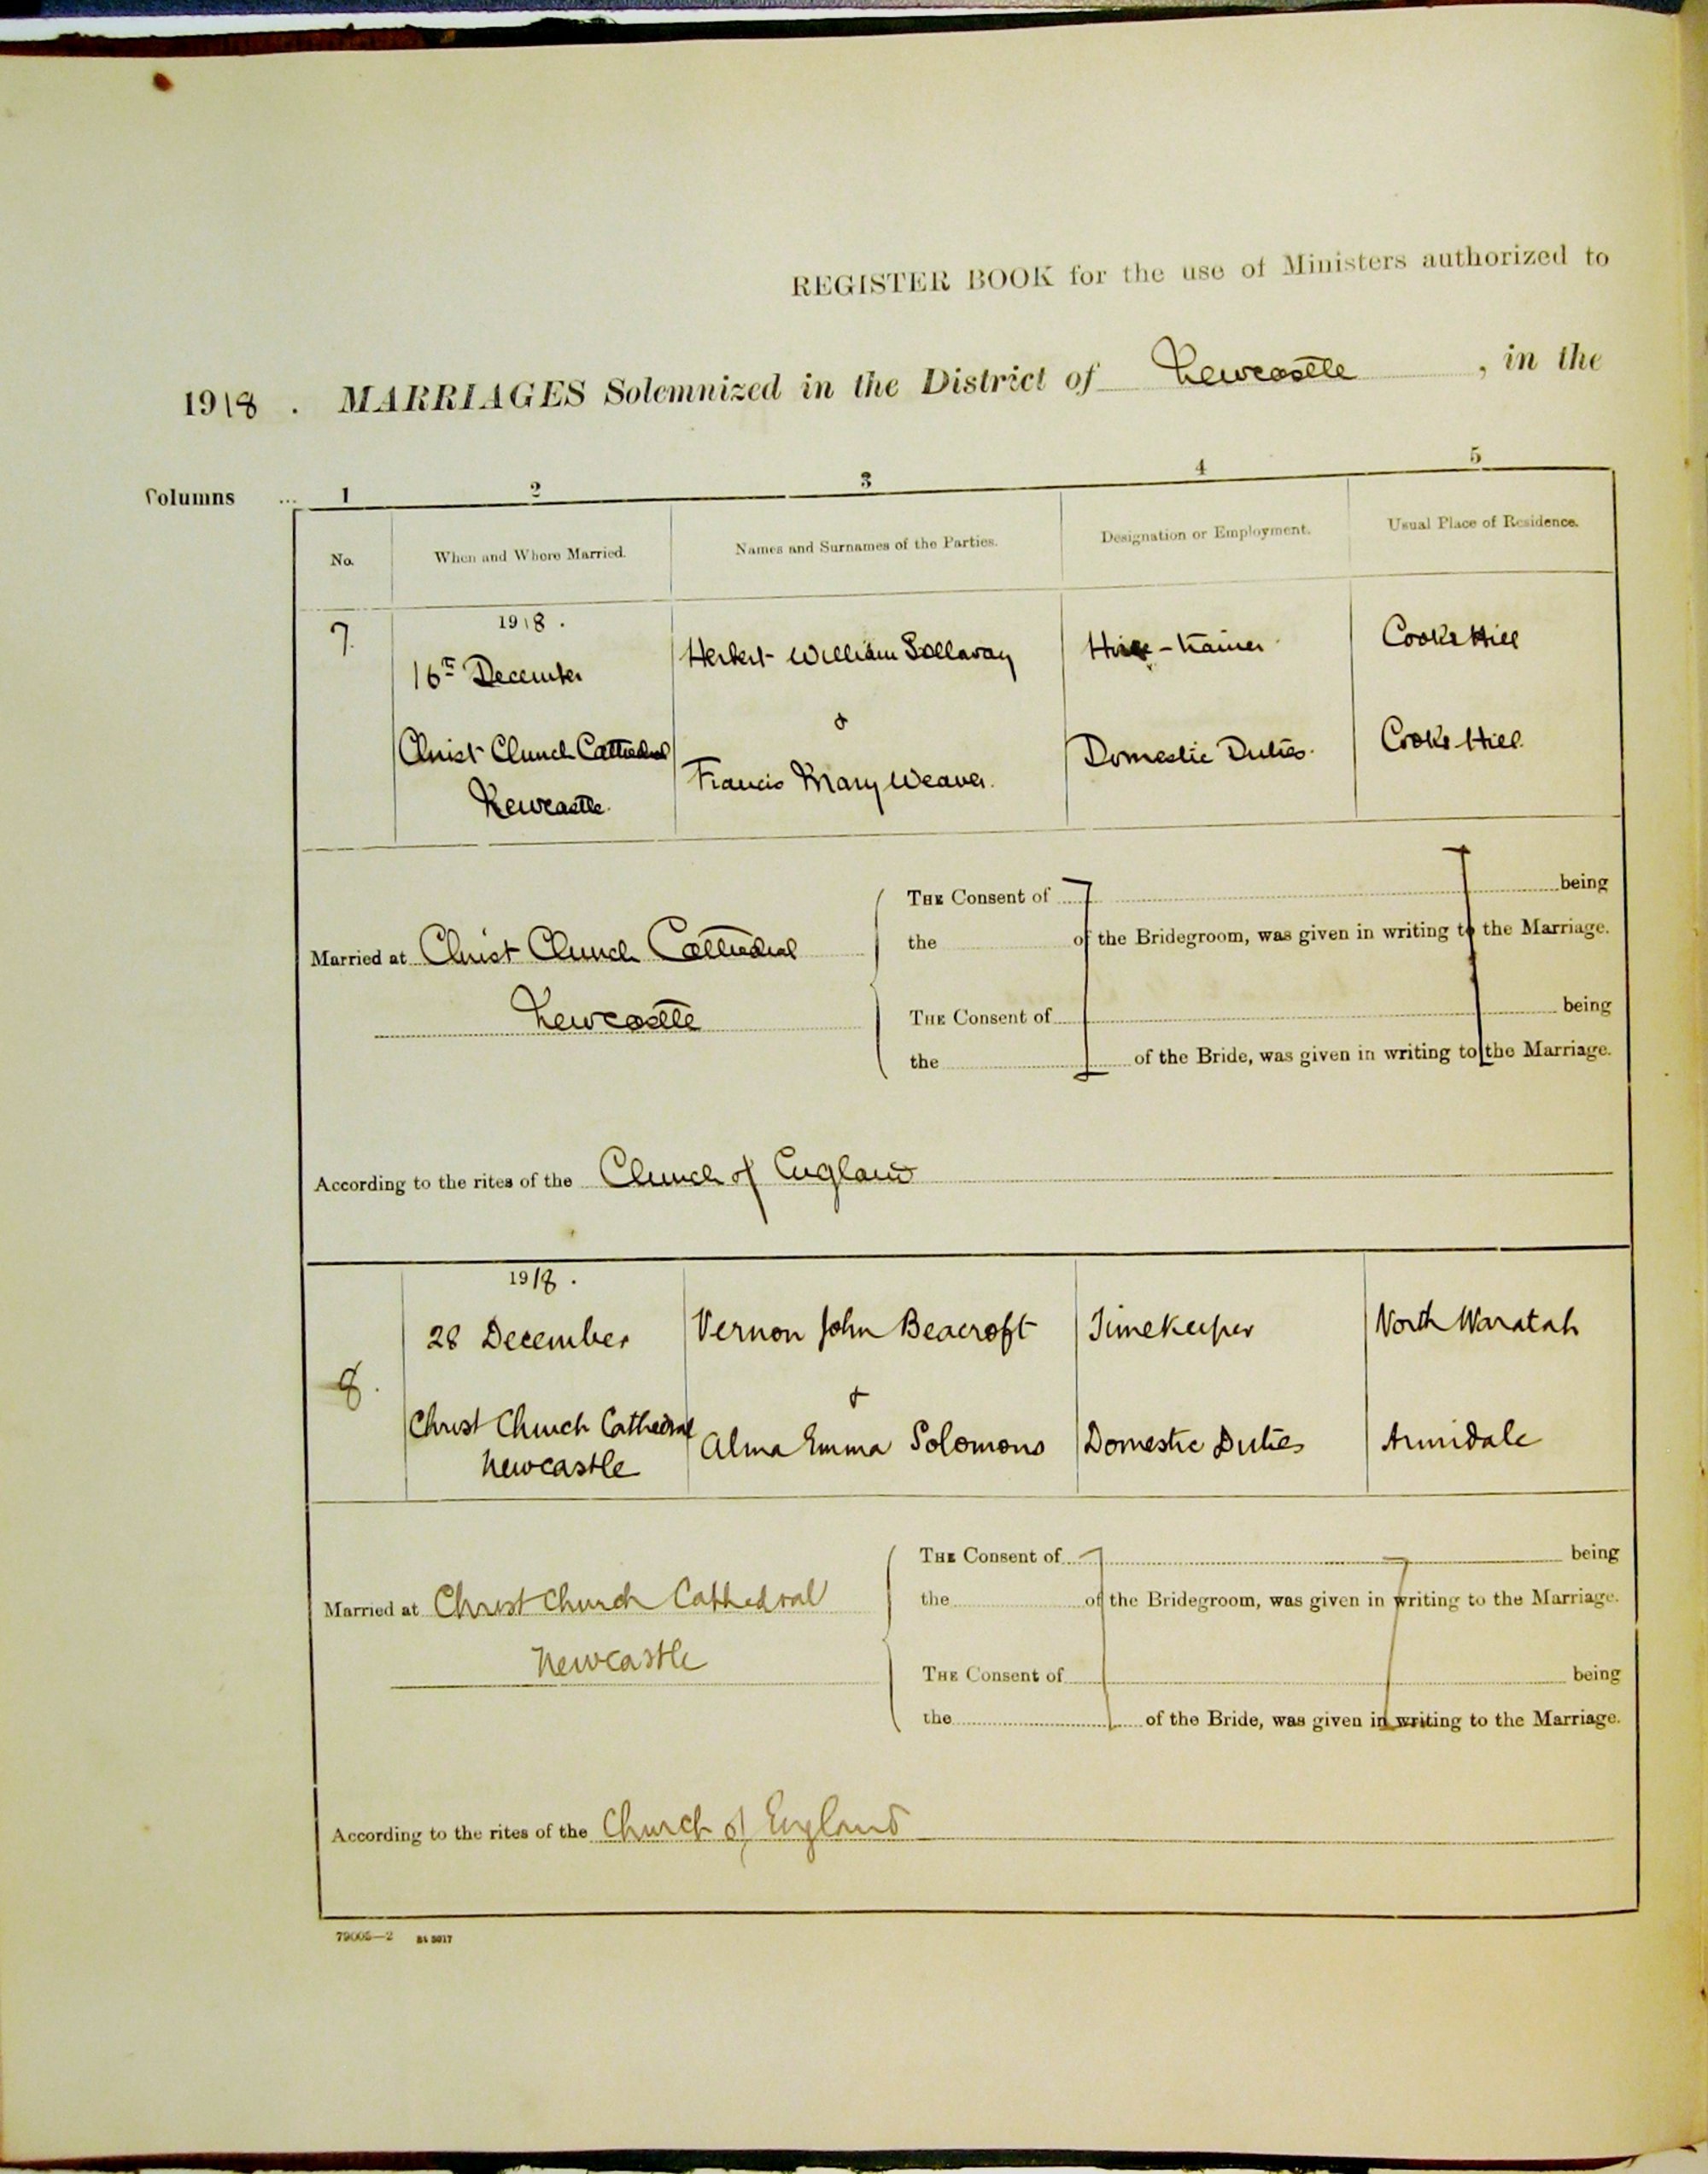 REGISTER BOOK for the use of Ministers authorized to
1918 . MARRIAGES Solemnized in the District of Newcastle , in the
Columns ... 1 2 3 4 5
No. When and Where Married. Names and Surnames of the Parties. Designation or Employment. Usual Place of Residence.
7. 1918 .
16th December Herbert William Sollavay Cooks Hill
&
Christ Church Cathedral Francis Mary Weaver. Domestic Duties. Cooks Hill.
Newcastle.
THE Consent of being
the of the Bridegroom, was given in writing to the Marriage.
Married at Christ Church Cathedral
Newcastle
THE Consent of being
the of the Bride, was given in writing to the Marriage.
According to the rites of the Church of England
1918 .
28 December Vernon John Beacroft Timekeeper North Waratah
8. &
Christ Church Cathedral Alma Emma Solomons Domestic Duties Armidale
Newcastle
THE Consent of being
the of the Bridegroom, was given in writing to the Marriage.
Married at Christ Church Cathedral
Newcastle
THE Consent of being
the of the Bride, was given in writing to the Marriage.
According to the rites of the Church of England
79005—2